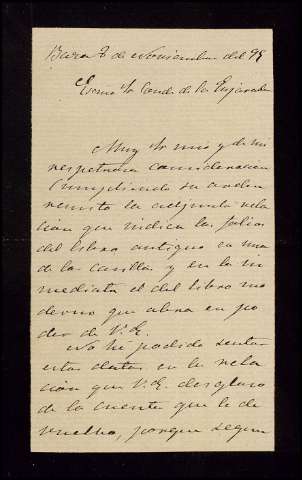 Baza 2 de Noviembre del 95
Excmo Sr Conde de las Infantas
Muy Sr mio y de mi
respetuosa consideracion
Cumpliendo su orden
remito la adjunta rela
cion que indica los folios
del libro antiguo en una
de las casillas y en la in
mediata el del libro mo
derno que obra en po
der de V.E.
No hé podido sentar
estos datos en la rela
ción que V.E. desglosó
de la cuenta que le de
vuelvo, porque segun